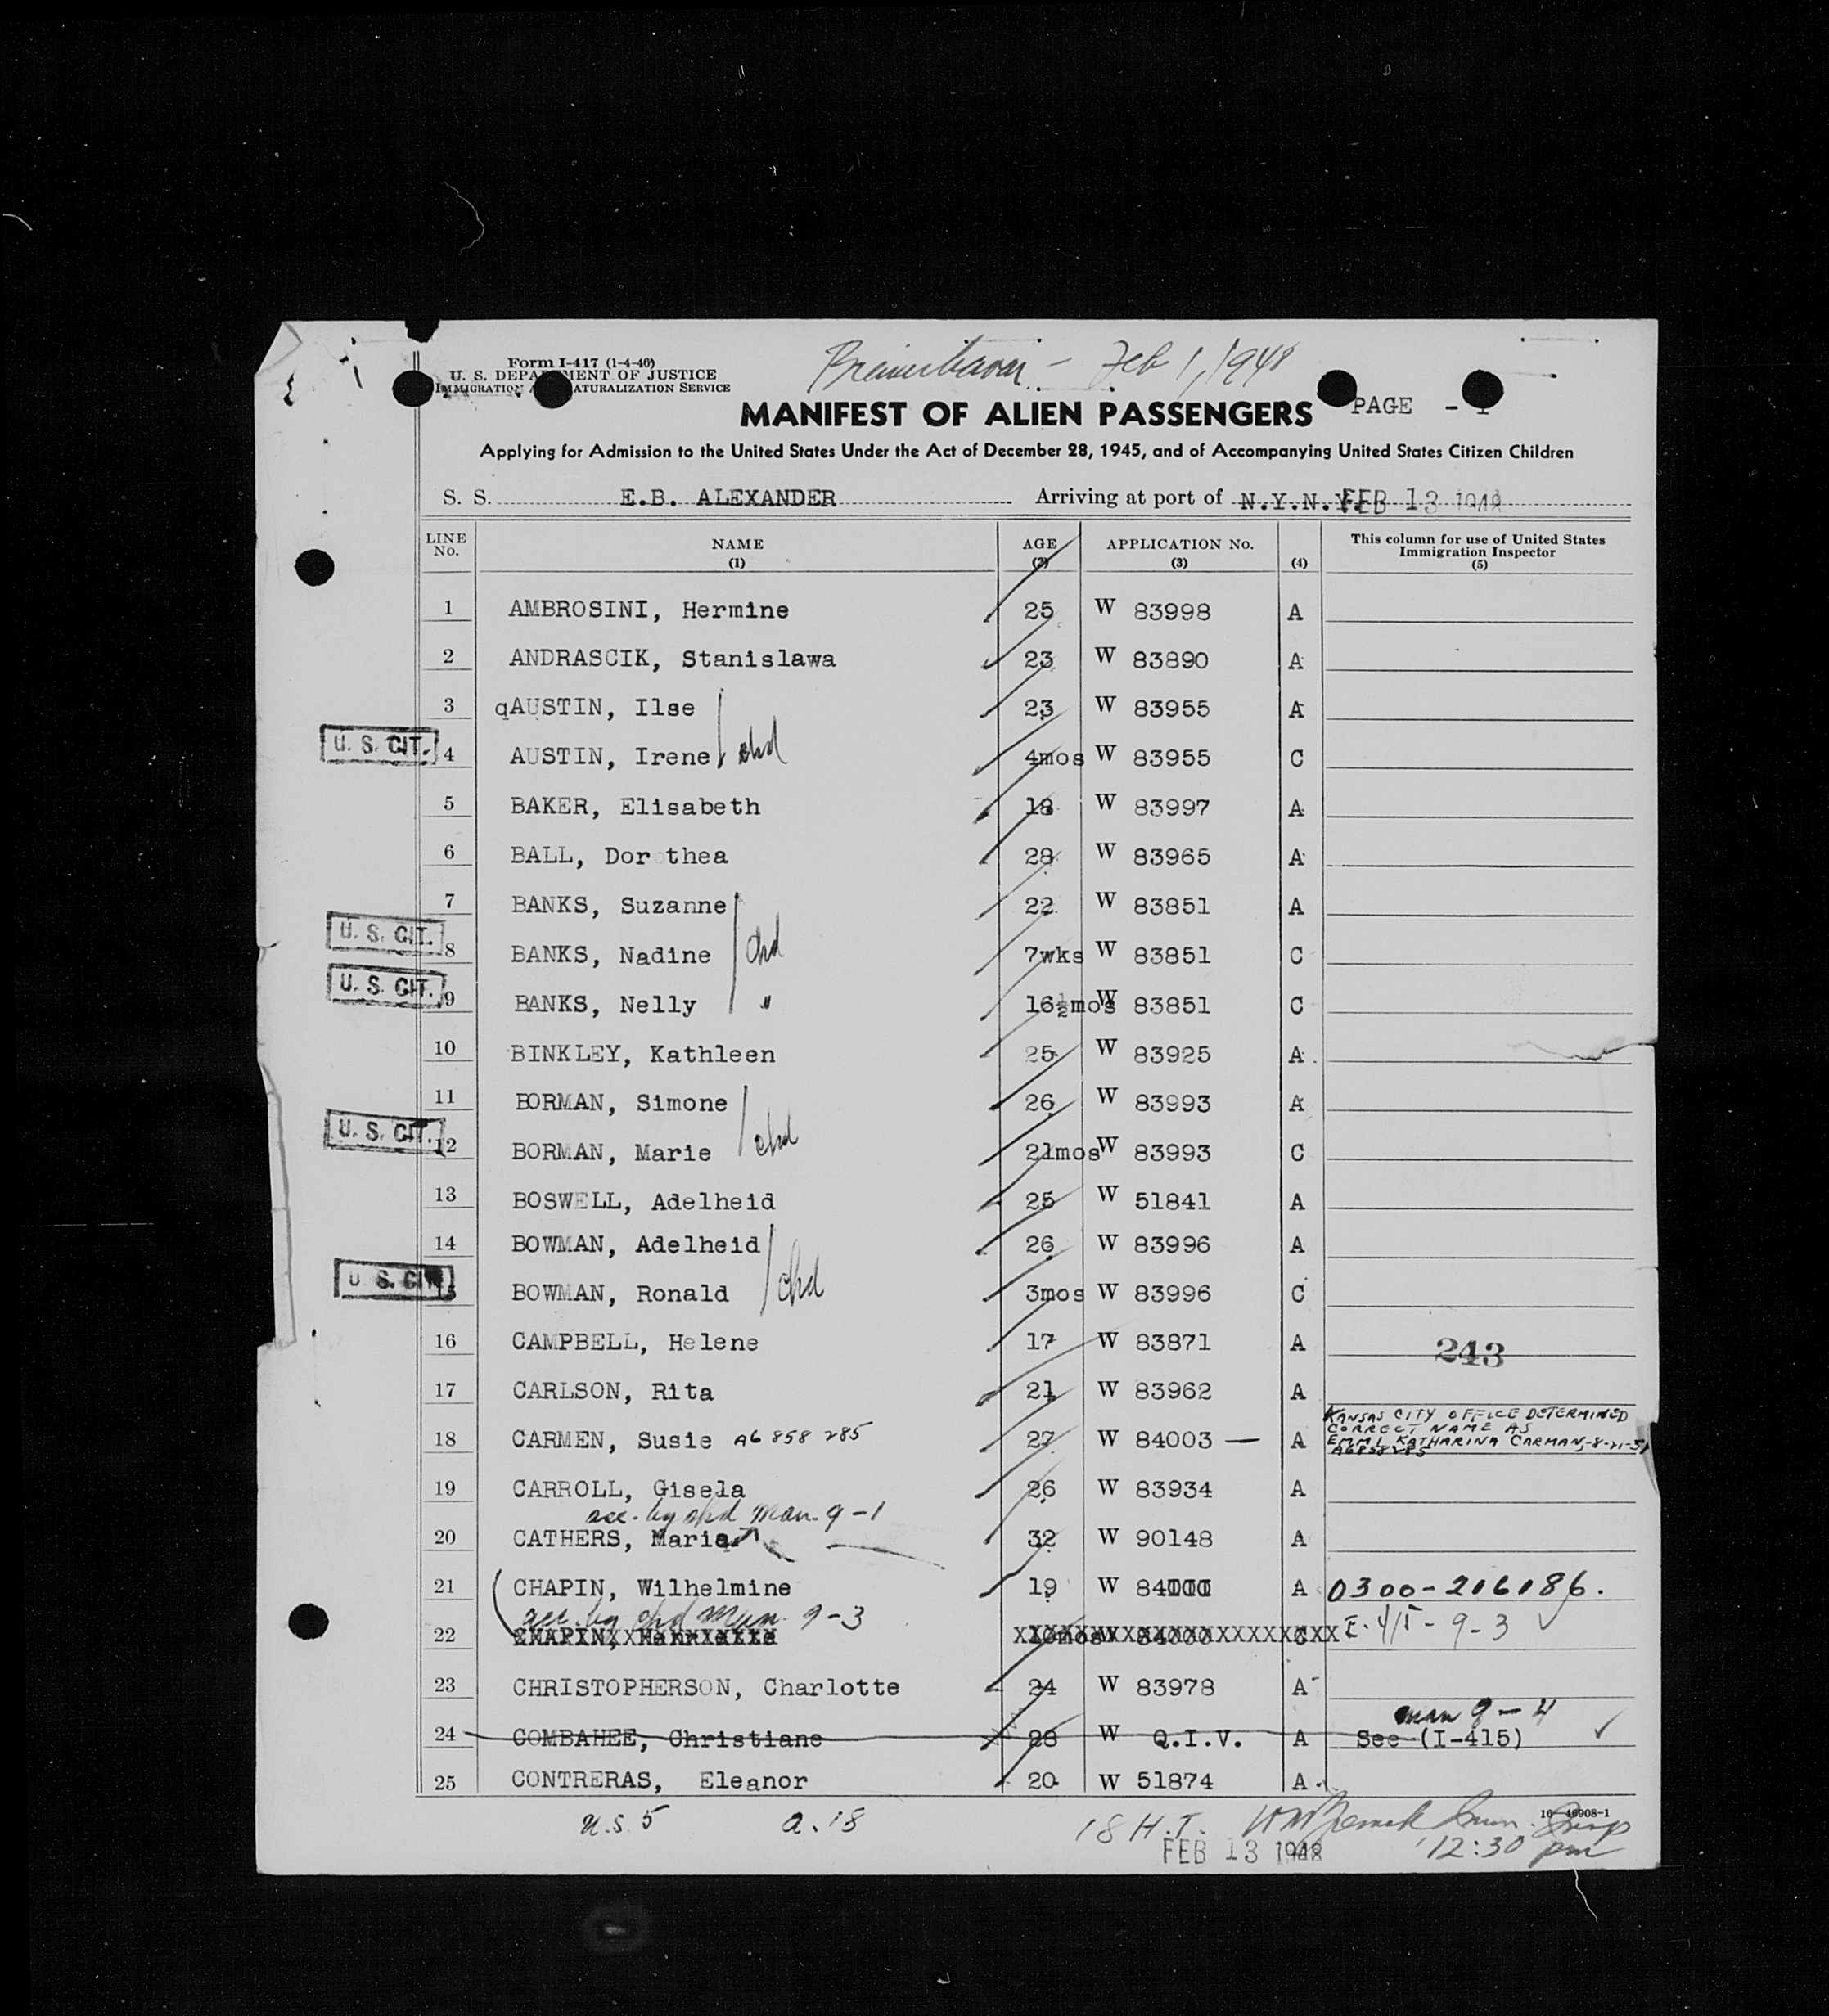 Form I-417 (1-4-46)
U. S. DEPARTMENT OF JUSTICE
IMMIGRATION NATURALIZATION SERVICE
Bremerhaven - Feb 1, 1948
MANIFEST OF ALIEN PASSENGERS
PAGE - 1
Applying for Admission to the United States Under the Act of December 28, 1945, and of Accompanying United States Citizen Children
S. S. E.B. ALEXANDER Arriving at port of N.Y.N.Y. FEB 13 1948
LINE No. NAME (1) AGE (2) APPLICATION No. (3) (4) This column for use of United States Immigration Inspector (5)
1 AMBROSINI, Hermine 25 W 83998 A
2 ANDRASCIK, Stanislawa 23 W 83890 A
3 qAUSTIN, Ilse 23 W 83955 A
U. S. CIT. 4 AUSTIN, Irene chd 4mos W 83955 C
5 BAKER, Elisabeth 18 W 83997 A
6 BALL, Dorothea 28 W 83965 A
7 BANKS, Suzanne 22 W 83851 A
U. S. CIT. 8 BANKS, Nadine chd 7wks W 83851 C
U. S. CIT. 9 BANKS, Nelly " 16½mos W 83851 C
10 BINKLEY, Kathleen 25 W 83925 A
11 BORMAN, Simone 26 W 83993 A
U. S. CIT. 12 BORMAN, Marie chd 21mos W 83993 C
13 BOSWELL, Adelheid 25 W 51841 A
14 BOWMAN, Adelheid 26 W 83996 A
U. S. CIT. 15 BOWMAN, Ronald chd 3mos W 83996 C
16 CAMPBELL, Helene 17 W 83871 A
243
17 CARLSON, Rita 21 W 83962 A
KANSAS CITY OFFICE DETERMINED
CORRECT NAME AS
18 CARMEN, Susie A6 858 285 27 W 84003 — A EMMI KATHARINA CARMAN,-8-21-51
A6858285
19 CARROLL, Gisela 26 W 83934 A
acc. by chd man. 9-1
20 CATHERS, Maria 32 W 90148 A
21 CHAPIN, Wilhelmine 19 W 84000 A 0300-216186.
acc. by chd man. 9-3
22 CHAPIN, 10mos W 84000 C 9-3
23 CHRISTOPHERSON, Charlotte 24 W 83978 A
man 9-4
24 COMBAHEE, Christiane 28 W Q.I.V. A See (I-415)
25 CONTRERAS, Eleanor 20 W 51874 A
16—46908-1
U.S. 5 A. 18 18 H.T. Imm. Insp
FEB 13 1948 12:30 pm